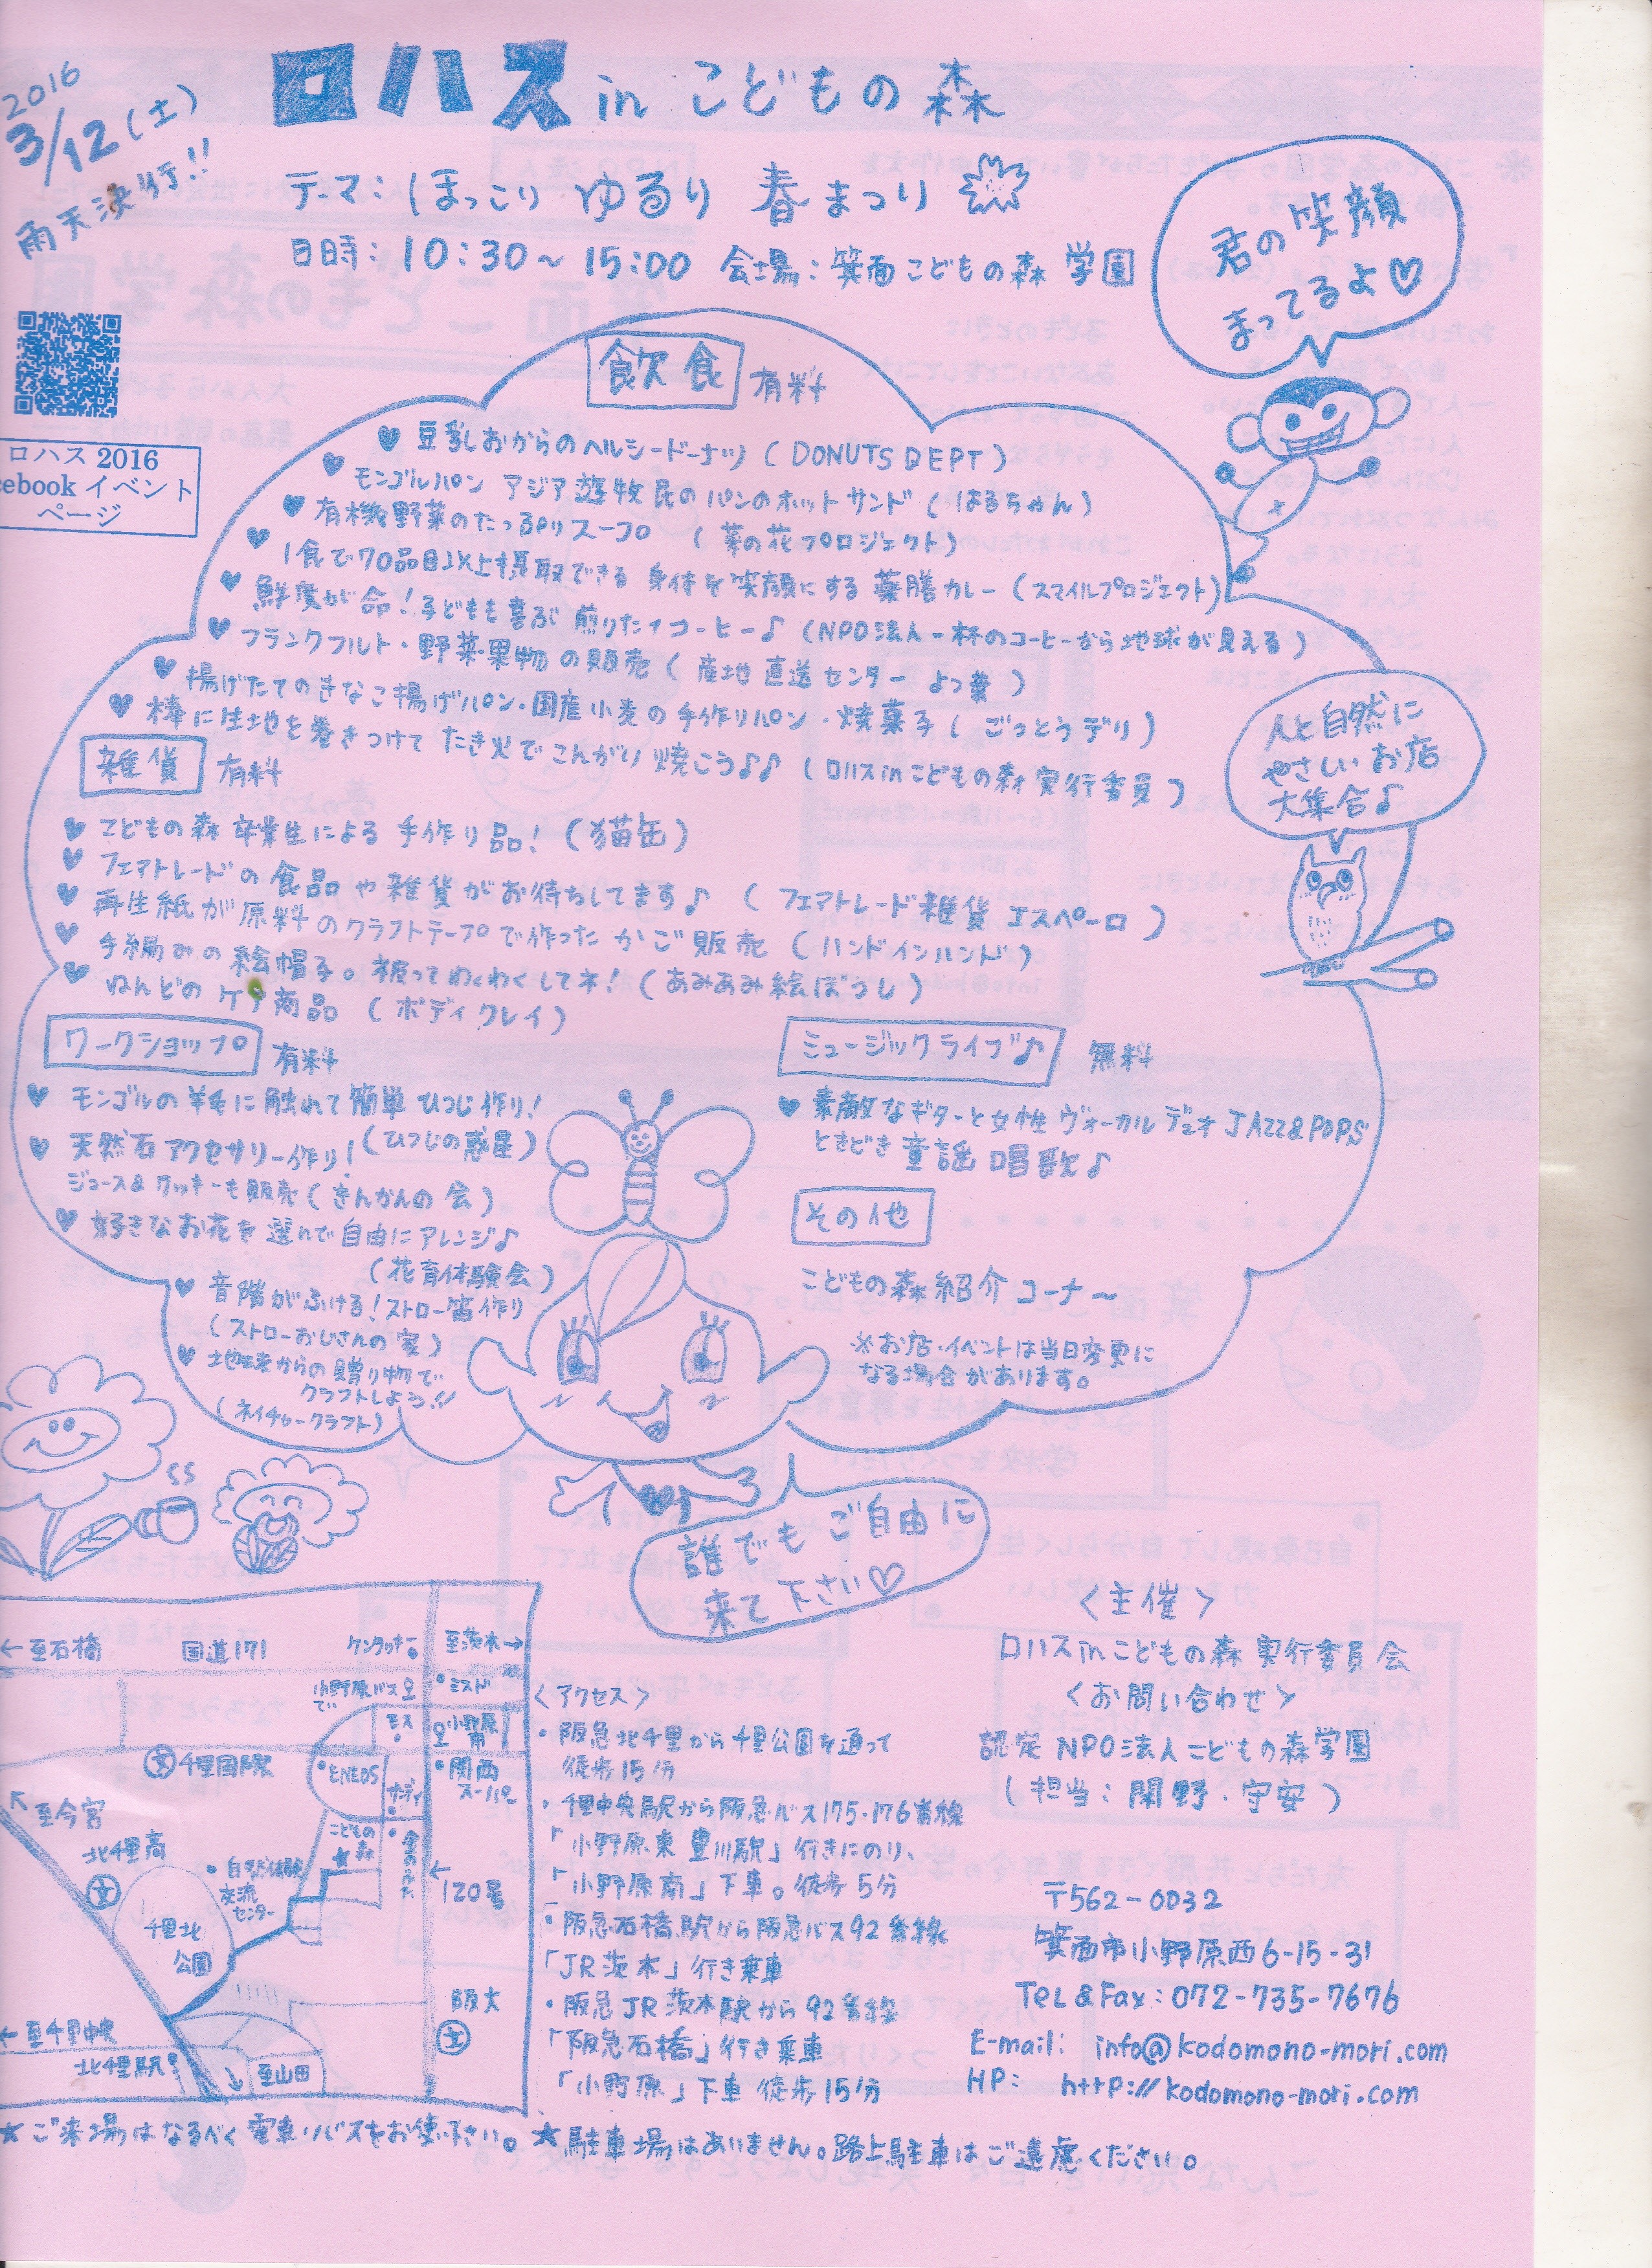 2016
3/12(土)
雨天決行!!
ロハス in こどもの森
テーマ：ほっこり ゆるり 春まつり
日時：10：30～15：00 会場：箕面こどもの森 学園
君の笑顔
まってるよ♡
ロハス 2016
ebook イベント
ページ
飲食 有料
♥ 豆乳しおからのヘルシードーナツ (DONUTS DEPT)
♥ モンゴルパン アジア遊牧民のパンのホットサンド (はるちゃん)
♥ 有機野菜のたっぷりスープ (菜の花プロジェクト)
♥ 1食で70品目以上摂取できる 身体を笑顔にする 薬膳カレー (スマイルプロジェクト)
♥ 鮮度が命！子どもも喜ぶ 煎りたてコーヒー♪ (NPO法人一杯のコーヒーから地球が見える)
♥ フランクフルト・野菜・果物の販売 (産地直送センター よつ葉)
♥ 揚げたてのきなこ揚げパン・国産小麦の手作りパン・焼菓子 (ごっとうデリ)
♥ 棒に生地を巻きつけて たき火で こんがり 焼こう♪♪ (ロハスinこどもの森 実行委員)
雑貨 有料
♥ こどもの森 卒業生による 手作り品！ (猫缶)
♥ フェアトレードの食品や雑貨がお待ちしてます♪ (フェアトレード雑貨 エスペーロ)
♥ 再生紙が原料のクラフトテープで作った かご販売 (ハンドインハンド)
♥ 手編みの絵帽子。被ってわくわくしてネ！ (あみあみ絵ぼうし)
♥ ねんどの ケア商品 (ボディクレイ)
人と自然に
やさしいお店
大集合♪
ワークショップ 有料
♥ モンゴルの羊毛に触れて簡単 ひつじ作り！
(ひつじの惑星)
♥ 天然石アクセサリー作り！
ジュース&クッキーも販売 (きんかんの会)
♥ 好きなお花を選んで自由にアレンジ♪
(花育体験会)
♥ 音階がふける！ストロー笛作り
(ストローおじさんの家)
♥ 地球からの贈り物で
クラフトしよう!!
(ネイチャークラフト)
ミュージックライブ♪ 無料
♥ 素敵なギターと女性ヴォーカルデュオ JAZZ&POPS
ときどき 童謡唱歌♪
その他
こどもの森紹介コーナー
※お店・イベントは当日変更に
なる場合があります。
誰でもご自由に
来て下さい♡
←至石橋 国道171 ケンタッキー 至茨木→
小野原バスてい
ミスド
モス
小野原南
文 千里国際
ENEDS
関西スーパー
至今宮
北千里高
文
こどもの森
自然体験交流センター
←120号
千里北公園
阪大
文
←至千里中央
北千里駅
至山田
〈アクセス〉
・阪急北千里から千里公園を通って
徒歩15分
・千里中央駅から阪急バス175・176番線
「小野原東 豊川駅」行きにのり、
「小野原南」下車。徒歩5分
・阪急石橋駅から阪急バス92番線
「JR茨木」行き乗車
・阪急JR茨木駅から92番線
「阪急石橋」行き乗車
「小野原」下車 徒歩15分
〈主催〉
ロハスinこどもの森 実行委員会
〈お問い合わせ〉
認定NPO法人こどもの森学園
(担当：関野・守安)
〒562-0032
箕面市小野原西6-15-31
TEL&Fax：072-735-7676
E-mail: info@kodomono-mori.com
HP: http://kodomono-mori.com
★ご来場はなるべく電車・バスをお使い下さい。★駐車場はありません。路上駐車はご遠慮ください。